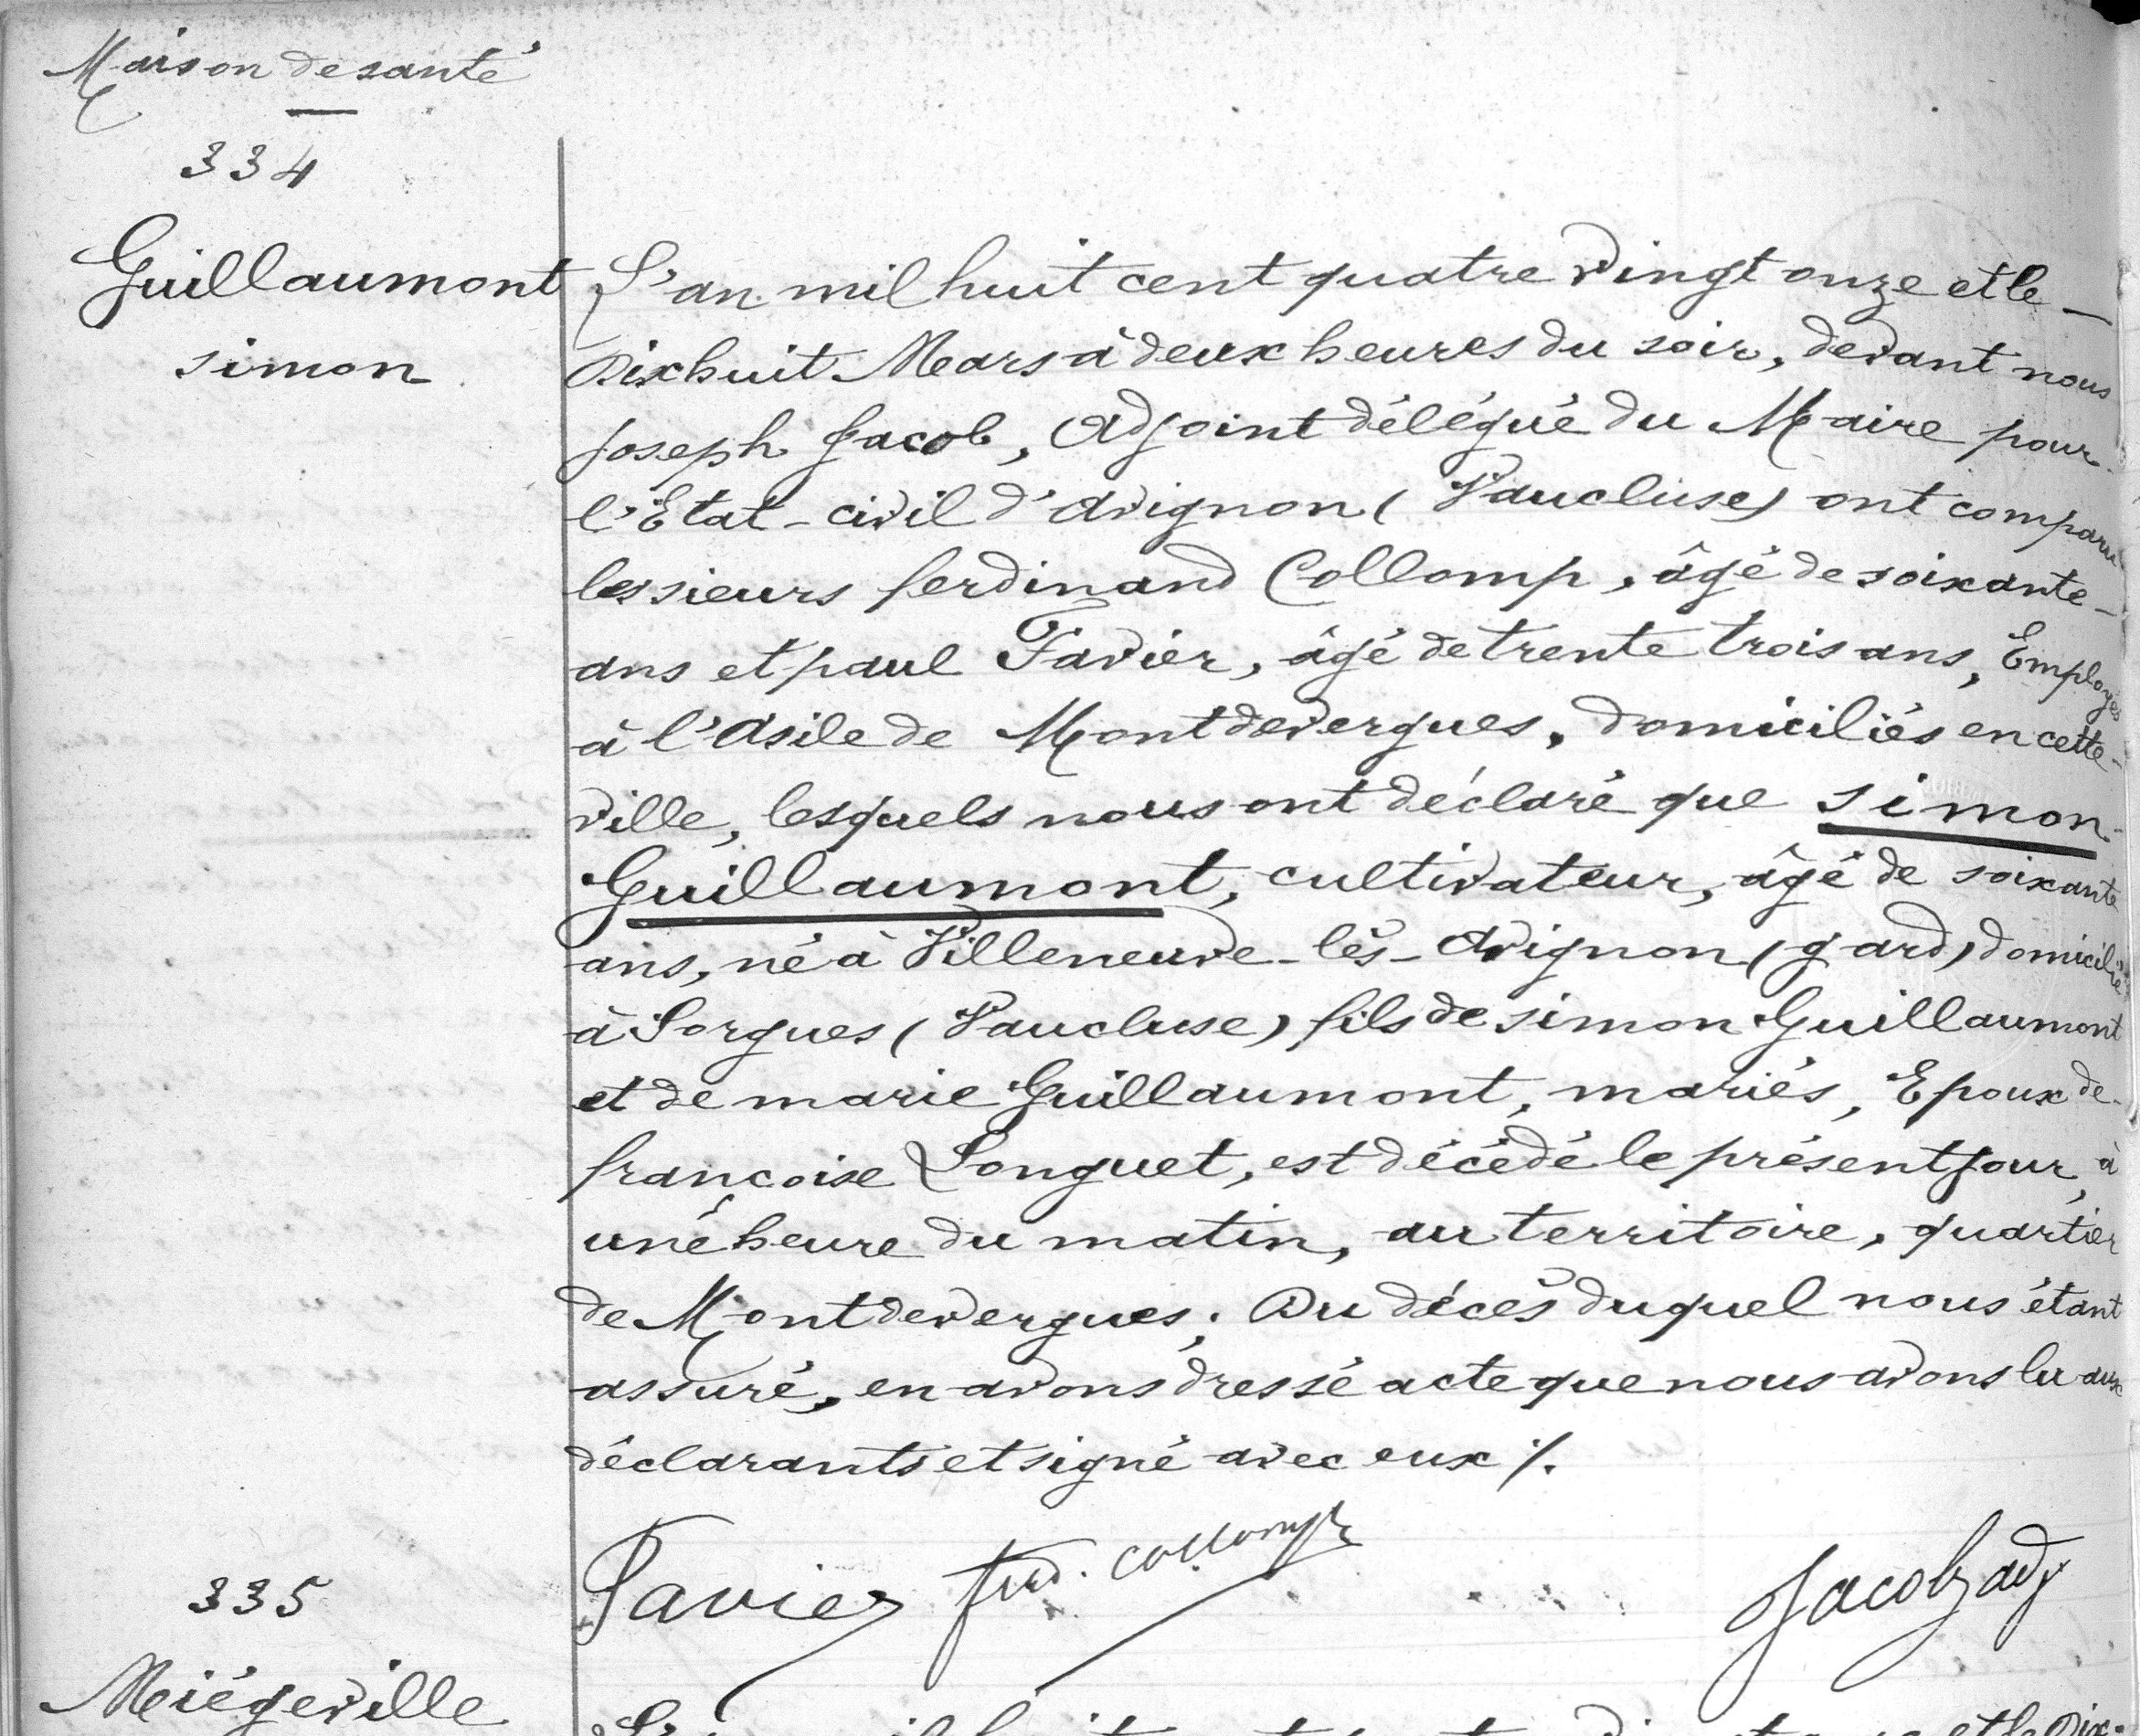 Maison de santé
334
Guillaumont
simon
L'an mil huit cent quatre vingt onze et le
dixhuit Mars à deux heures du soir, devant nous
joseph Jacob, Adjoint délégué du Maire pour
l'Etat-civil d'Avignon (Vaucluse) ont comparu
les sieurs ferdinand Collomp, âgé de soixante-
ans et paul Favier, âgé de trente trois ans, Employés
à l'Asile de Montdevergues, domiciliés en cette
ville, lesquels nous ont déclaré que simon
Guillaumont, cultivateur, âgé de soixante
ans, né à Villeneuve-lès-Avignon (gard) domicilié
à Sorgues (Vaucluse) fils de simon Guillaumont
et de marie Guillaumont, mariés, Epoux de
françoise Longuet, est décédé le présent jour, à
une heure du matin, au territoire, quartier
de Montdevergues; Du décès duquel nous étant
assuré, en avons dressé acte que nous avons lu aux
déclarants et signé avec eux ./.
Favier ferd. Collomp Jacob adj
335
Miégeville